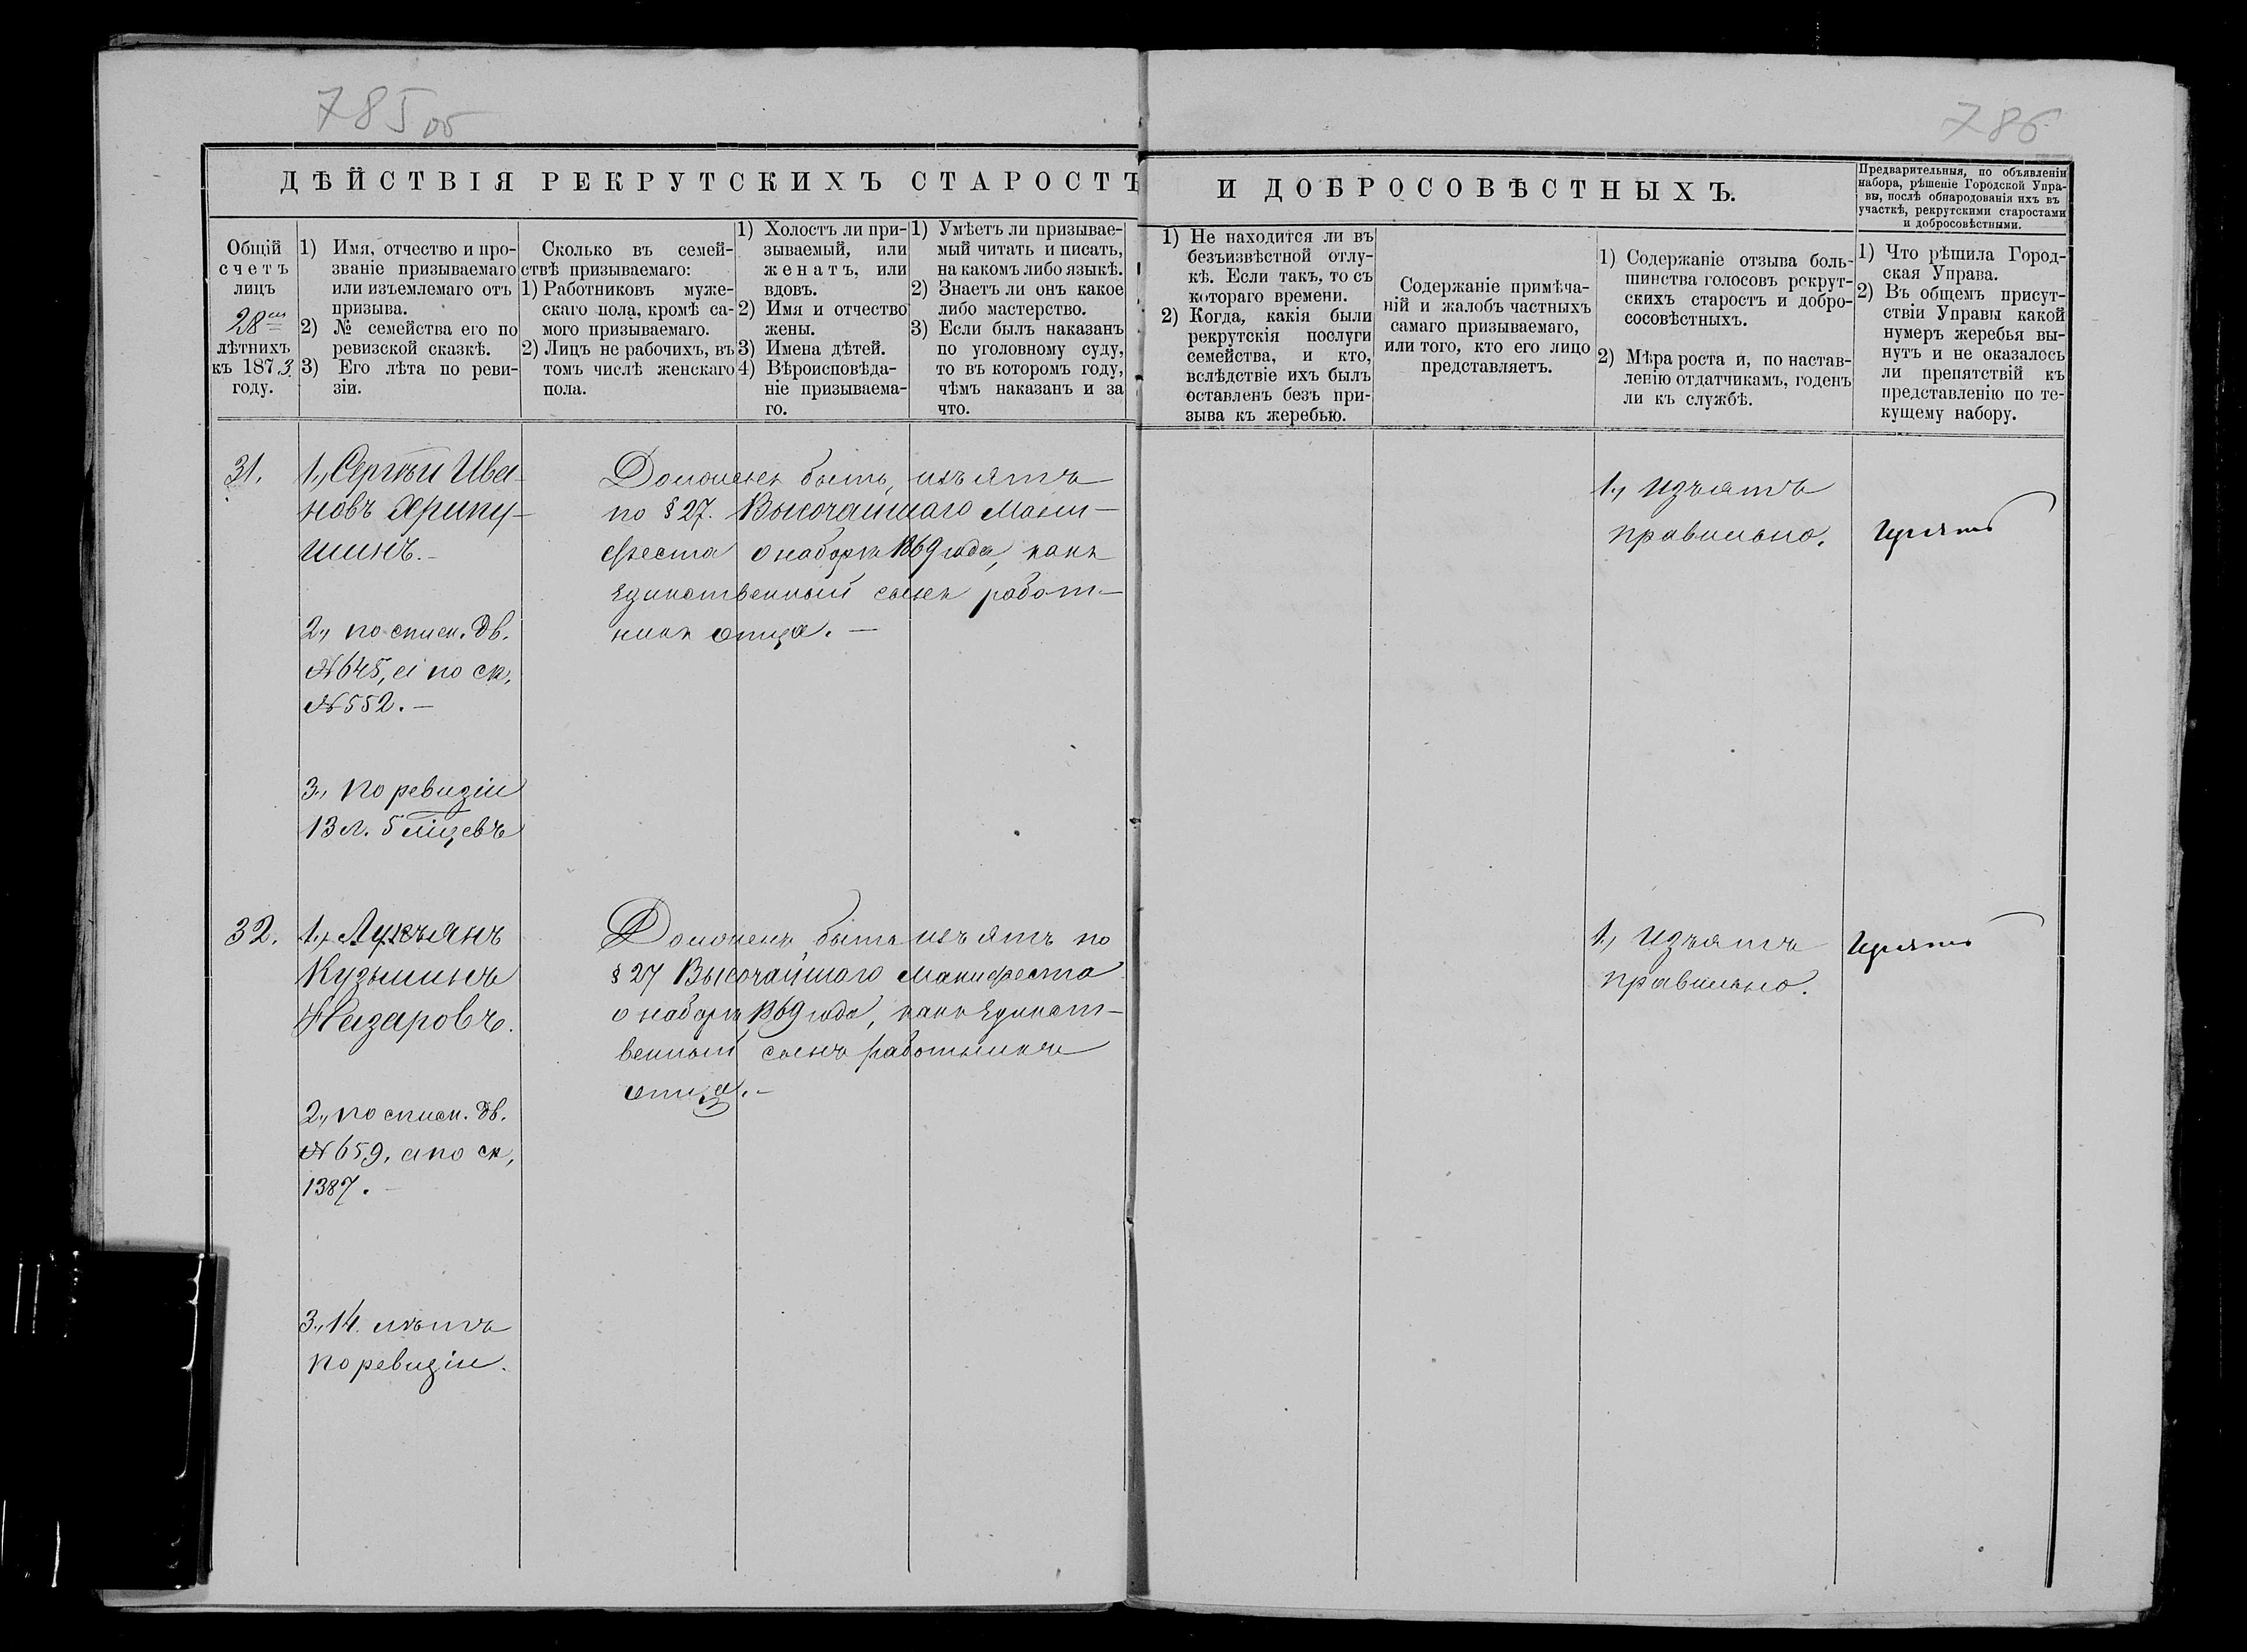 785 об
786
ДѢЙСТВІЯ РЕКРУТСКИХЪ СТАРОСТЪ
И ДОБРОСОВѢСТНЫХЪ.
Предварительныя, по объявленіи
набора, рѣшеніе Городской Упра-
вы, послѣ обнародованія ихъ въ
участкѣ, рекрутскими старостами
и добросовѣстными.
Общій
счетъ
лицъ
28ми
лѣтнихъ
къ 1873
году.
1) Имя, отчество и про-
званіе призываемаго
или изъемлемаго отъ
призыва.
2) № семейства его по
ревизской сказкѣ.
3) Его лѣта по реви-
зіи.
Сколько въ семей-
ствѣ призываемаго:
1) Работниковъ муже-
скаго пола, кромѣ са-
мого призываемаго.
2) Лицъ не рабочихъ, въ
томъ числѣ женскаго
пола.
1) Холостъ ли при-
зываемый, или
женатъ, или
вдовъ.
2) Имя и отчество
жены.
3) Имена дѣтей.
4) Вѣроисповѣда-
ніе призываема-
го.
1) Умѣетъ ли призывае-
мый читать и писать,
на какомъ либо языкѣ.
2) Знаетъ ли онъ какое
либо мастерство.
3) Если былъ наказанъ
по уголовному суду,
то въ которомъ году,
чѣмъ наказанъ и за
что.
1) Не находится ли въ
безъизвѣстной отлу-
кѣ. Если такъ, то съ
котораго времени.
2) Когда, какія были
рекрутскія послуги
семейства, и кто,
вслѣдствіе ихъ былъ
оставленъ безъ при-
зыва къ жеребью.
Содержаніе примѣча-
ній и жалобъ частныхъ
самаго призываемаго,
или того, кто его лицо
представляетъ.
1) Содержаніе отзыва боль-
шинства голосовъ рекрут-
скихъ старостъ и добро-
сосовѣстныхъ.
2) Мѣра роста и, по настав-
ленію отдатчикамъ, годенъ
ли къ службѣ.
1) Что рѣшила Город-
ская Управа.
2) Въ общемъ присут-
ствіи Управы какой
нумеръ жеребья вы-
нутъ и не оказалось
ли препятствій къ
представленію по те-
кущему набору.
31.
1., Сергѣй Ива-
новъ Хрипу-
шинъ.-
2., по списк. дв.
№ 645, а по ск.
№ 552.-
3., По ревизіи
13 л. 5 міцевъ
Долженъ быть изъятъ
по § 27. Высочайшаго Мани-
феста о наборѣ 1869 года, какъ
единственный сынъ работ-
никъ отца.-
1., Изъятъ
правильно.
32.
1., Лукьянъ
Кузьминъ
Назаровъ.
2., по списк. дв.
№ 659, а по ск,
1387.-
3., 14. лѣтъ
по ревизіи.
Долженъ быть изъятъ по
§ 27 Высочайшаго Манифеста
о наборѣ 1869 года, какъ единст-
венный сынъ работникъ
отца.-
1., Изъятъ
правильно.